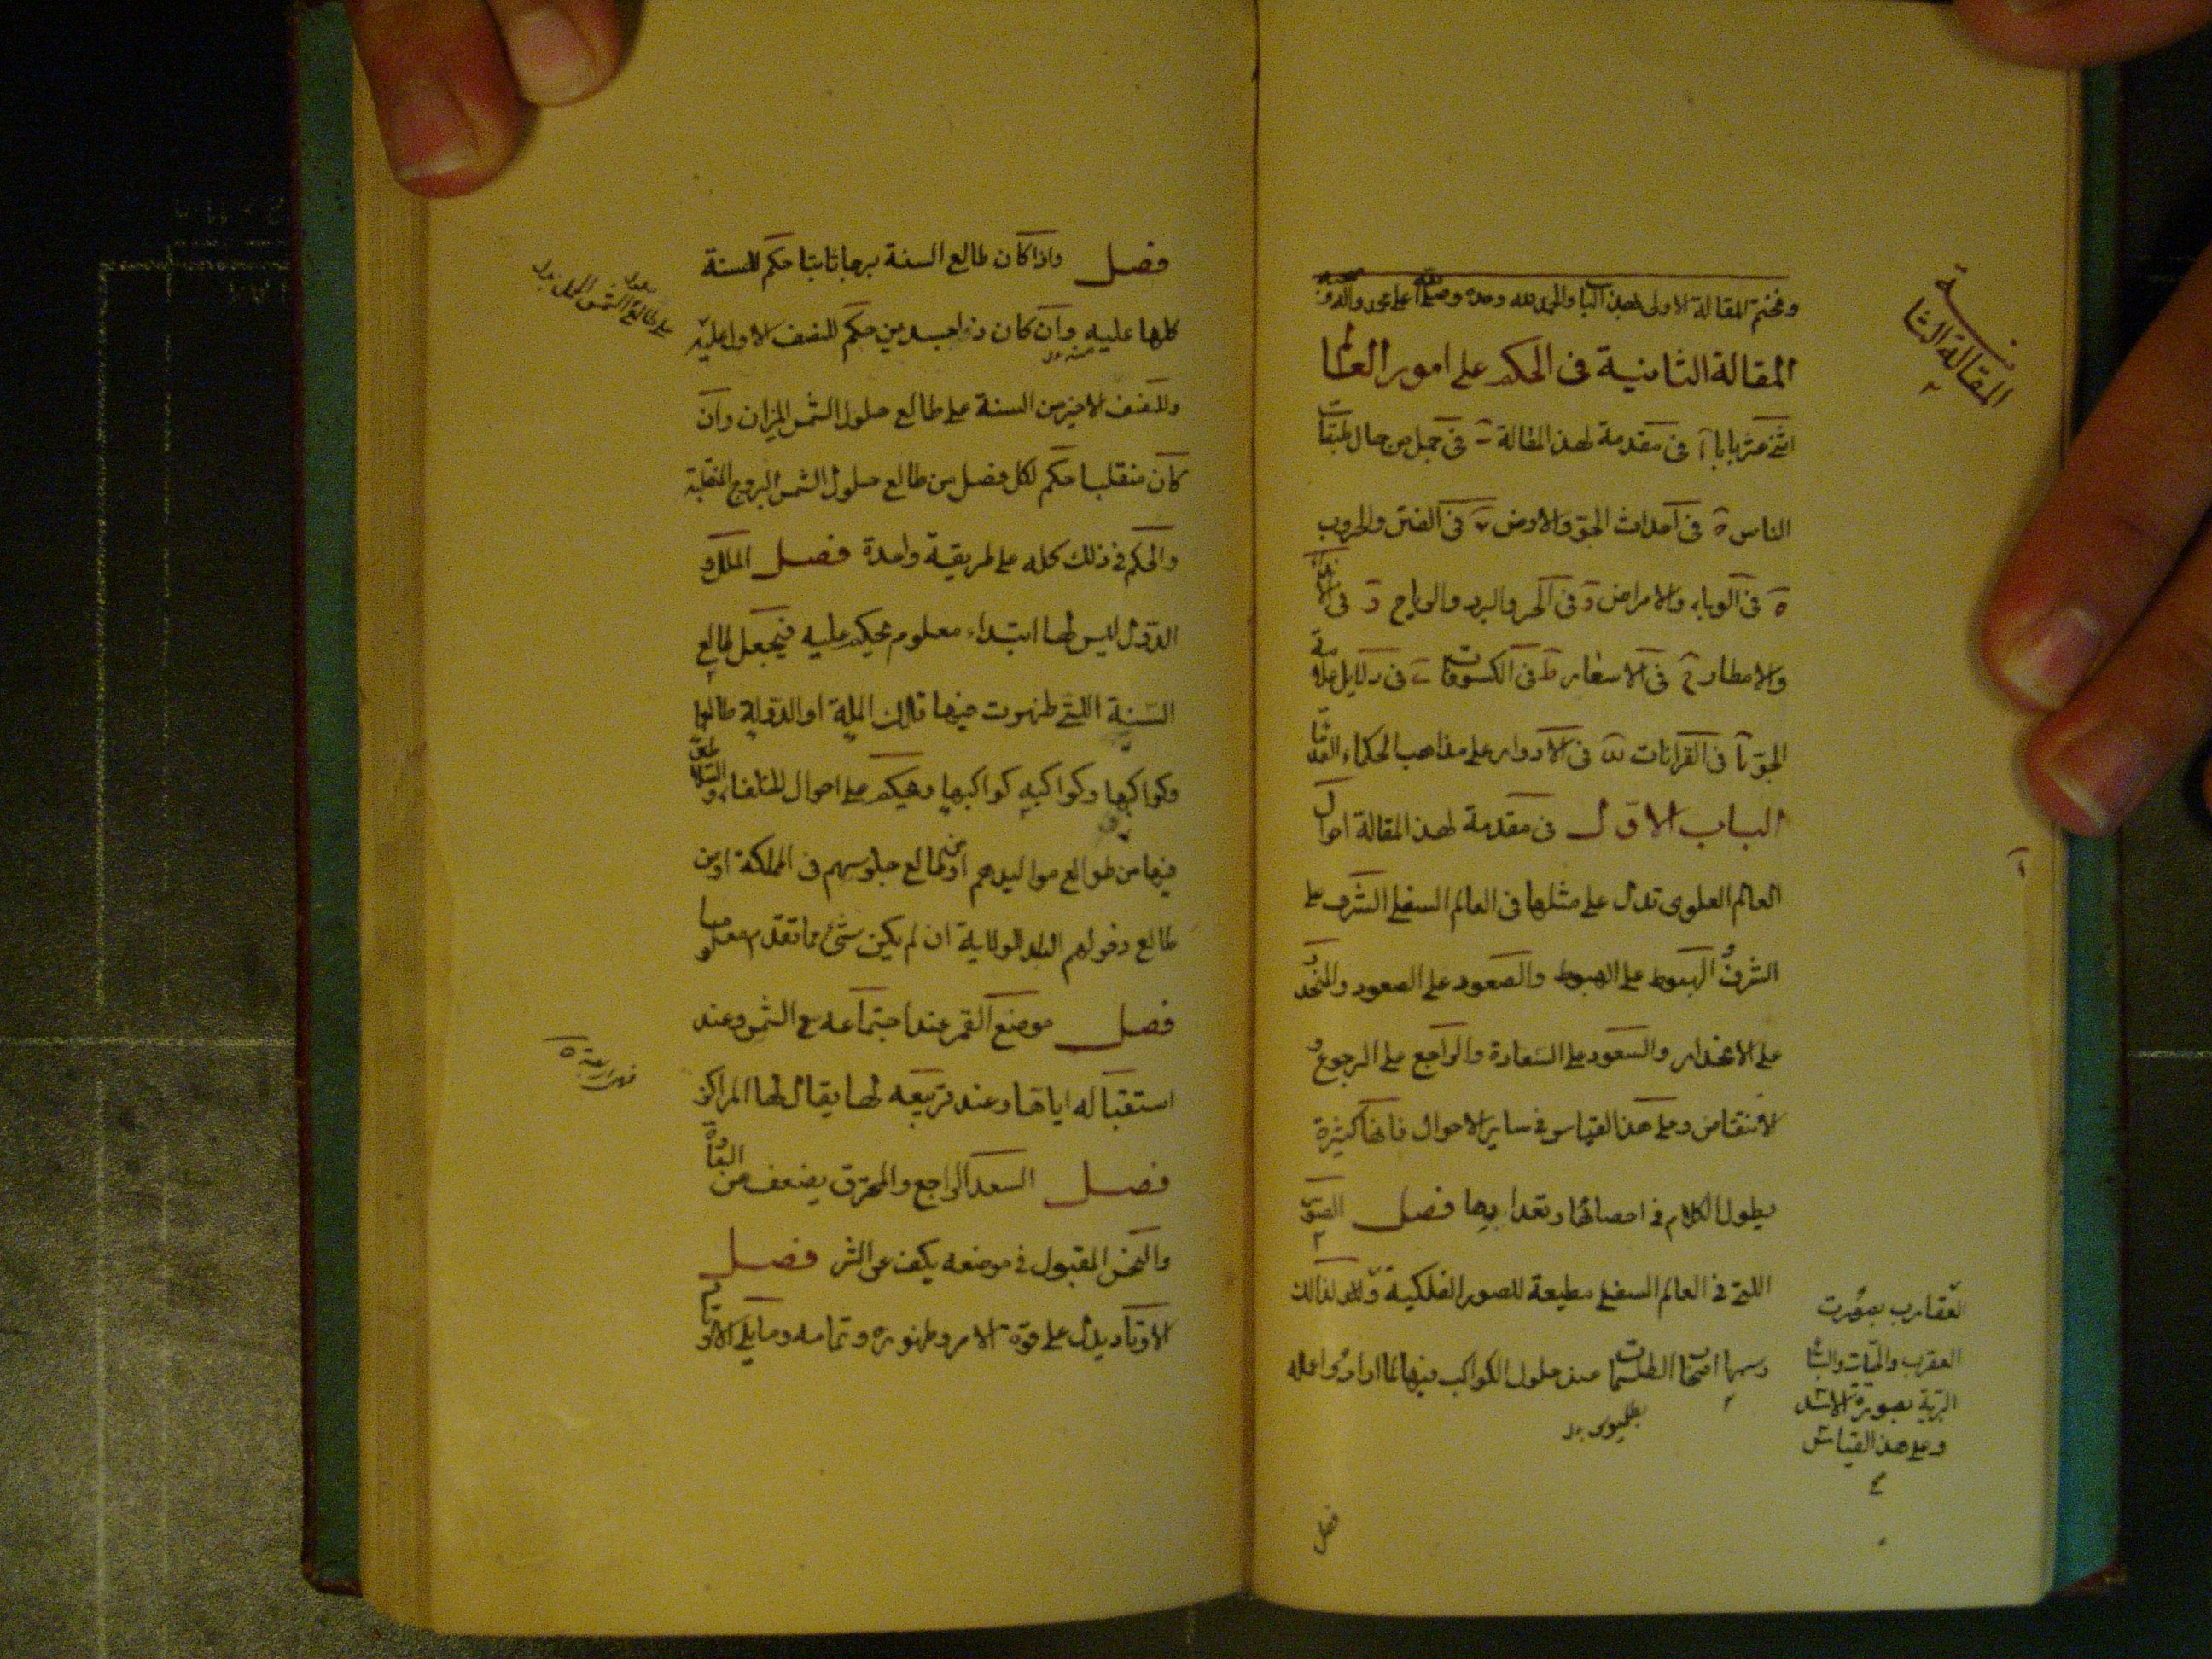 ونختم المقالة الاولى بهذا الباب والحمد لله وحده وصلى الله على محمد وآله وصحبه
المقالة الثانية فى الحكم على امور العالم
اثنى عشر بابا آ فى مقدمة لهذه المقالة ب فى جمل من حال طبقات
الناس ج فى احداث الجو والارض د فى الفتن والحروب
ه فى الوباء والامراض و فى الحر والبرد والرياح ز فى الانداء
والامطار ح فى الاسعار ط فى الكسوفات ى فى دلايل علامة
الجو يا فى القرانات يب فى الادوار على مذاهب الحكماء القدما
الباب الاول فى مقدمة لهذه المقالة احوال
العالم العلوى تدل على مثلها فى العالم السفلى الشرف على
الشرف والهبوط على الهبوط والصعود على الصعود والمنحدر
على الانحدار والسعود على السعادة والراجع على الرجوع و
الانتقاض وعلى هذا القياس فى ساير الاحوال فانها كثيرة
يطول الكلام فى احصائها وتعدايدها فصل الصور
التى فى العالم السفلى مطيعة للصور الفلكية ولذلك
رسمها اصحاب الطلسمات عند حلول الكواكب فيها لما ارادوا عمله
بطلميوس
المقالة الثانية
العقارب بصورت
العقرب والحيات والسباع
البرية بصورة الاسد
وعلى هذا القياس
فصل
فصل واذا كان طالع السنة برجا ثابتا حكم للسنة
كلها عليه وان كان ذا جسدين حكم للنصف الاول عليه
وللنصف الاخير من السنة على طالع حلول الشمس الميزان وان
كان منقلبا حكم لكل فصل من طالع حلول الشمس البروج المنقلبة
والحكم فى ذلك كله على طريقة واحدة فصل الملل و
الدول ليس لها ابتداء معلوم يحكم عليه فيجعل طالع
السنة التى ظهرت فيها تلك الملة او الدولة طالعها
وكواكبها وكواكبه كواكبها ويحكم على احوال الخلفاء والسلاطين
فيها من طوالع مواليدهم او من طالع جلوسهم فى المملكة او من
طالع دخولهم البلد للولاية ان لم يكن شئ مما تقدم معلوما
فصل موضع القمر عند اجتماعه مع الشمس وعند
استقباله اياها وعند تربيعه لها يقال لها المراكز
فصل السعد الراجع والمحترق يضعف عن السعادة
والنحس المقبول فى موضعه يكف عن الشر فصل
الاوتاد يدل على قوة الامر وظهوره وتمامه وما يلى الاوتاد
على طالع حلول الشمس الحمل